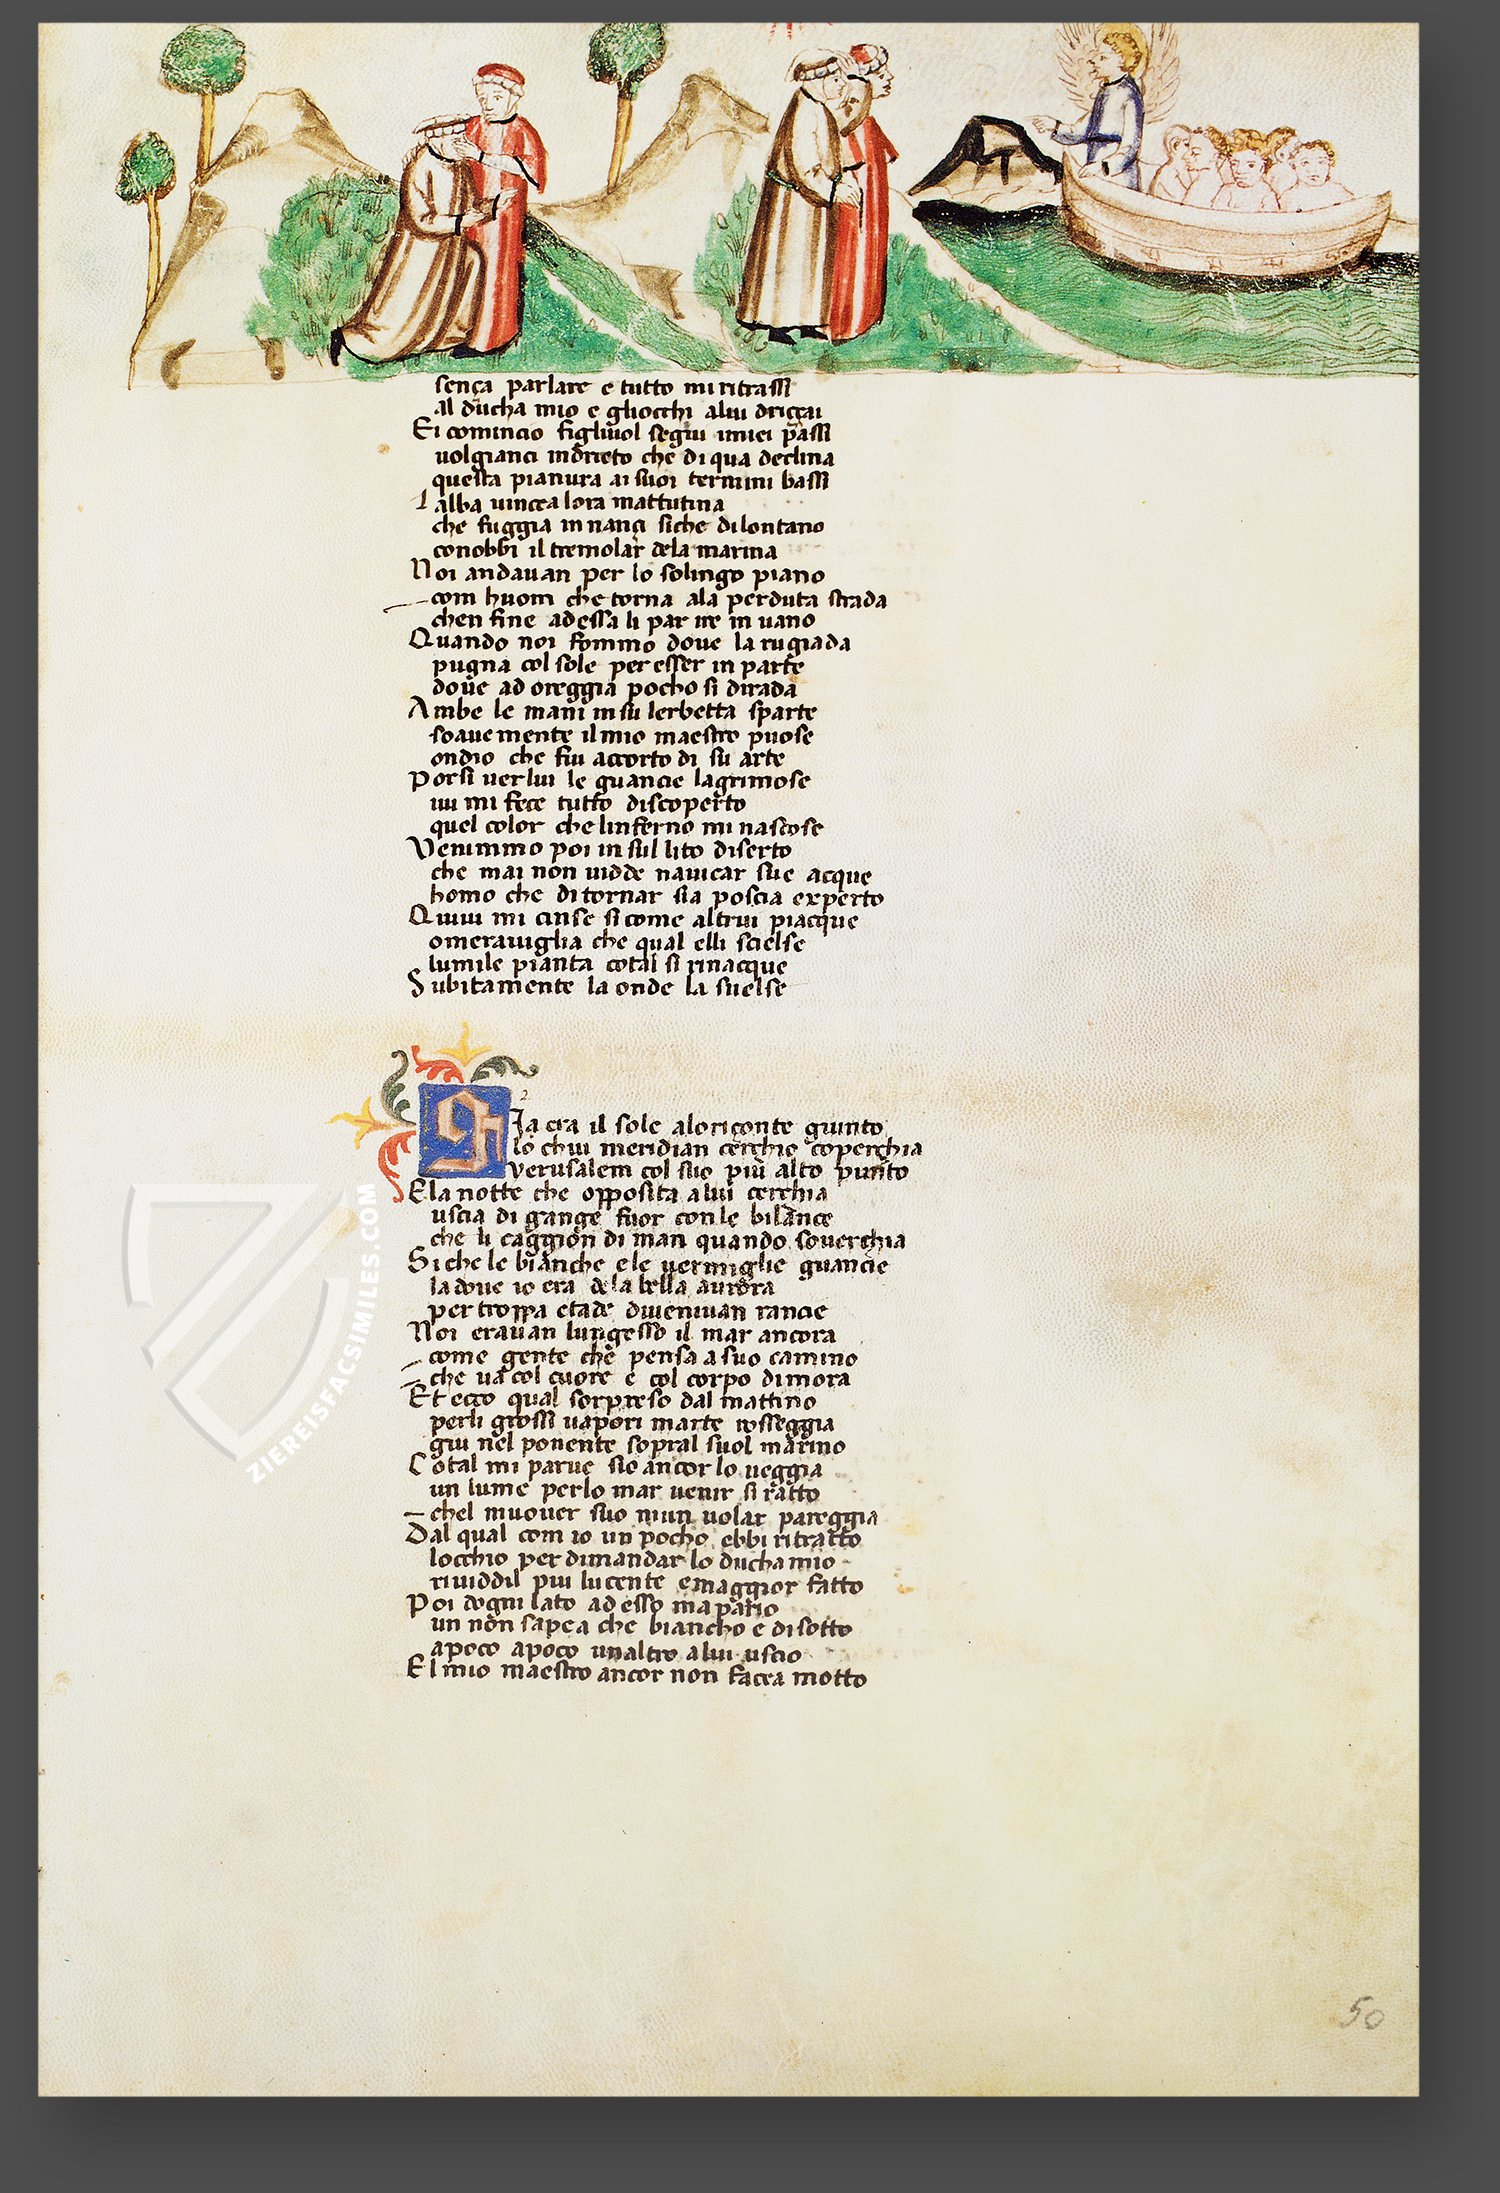 sença parlare e tutto mi ritrassi
al ducha mio e gliocchi alui driççai
Ei comincio figliuol segui imiei passi
uolgianci indrieto che di qua declina
questa pianura ai suoi termini bassi
Lalba uincea lora mattutina
che fuggia innançi siche dilontano
conobbi il tremolar dela marina
Noi andauan per lo solingo piano
com huom che torna ala perduta strada
chen fine adessa li par ire in uano
Quando noi fommo doue la rugiada
pugna col sole per esser in parte
doue ad oreggia pocho si dirada
Ambe le mani insu lerbetta sparte
soauemente ilmio maestro puose
ondio che fui accorto di su arte
Porsi uerlui le guancie lagrimose
iui mi fece tutto discoperto
quel color che linferno mi nascose
Venimmo poi insul lito diserto
che mai non uidde nauicar sue acque
homo che di tornar sia poscia experto
Quiui mi cinse si come altrui piacque
omerauiglia che qual elli scielse
lumile pianta cotal si rinacque
Subitamente la onde la suelse
2
Gia era il sole aloriçonte giunto
lo chui meridian cerchio coperchia
Yerusalem col suo piu alto punto
Ela notte che opposita alui cerchia
uscia di gange fuor conle bilance
che li caggion di man quando souerchia
Siche le bianche ele uermiglie guancie
ladoue io era dela bella aurora
per troppa etade diueniuan rancie
Noi erauan lunghesso il mar ancora
come gente che pensa asuo camino
che ua col cuore e col corpo dimora
Et ecco qual sorpreso dal mattino
perli grossi uapori marte rosseggia
giu nel ponente sopral suol marino
Cotal mi parue sio ancor lo ueggia
un lume perlo mar uenir si ratto
chel muouer suo niun uolar pareggia
Dal qual com io un pocho ebbi ritratto
locchio per dimandar lo ducha mio
riuiddil piu lucente emaggior fatto
Poi dogni lato ad esso mapario
un non sapea che biancho e disotto
apoco apoco unaltro alui uscio
El mio maestro ancor non facea motto
ZIEREISFACSIMILES.COM
50